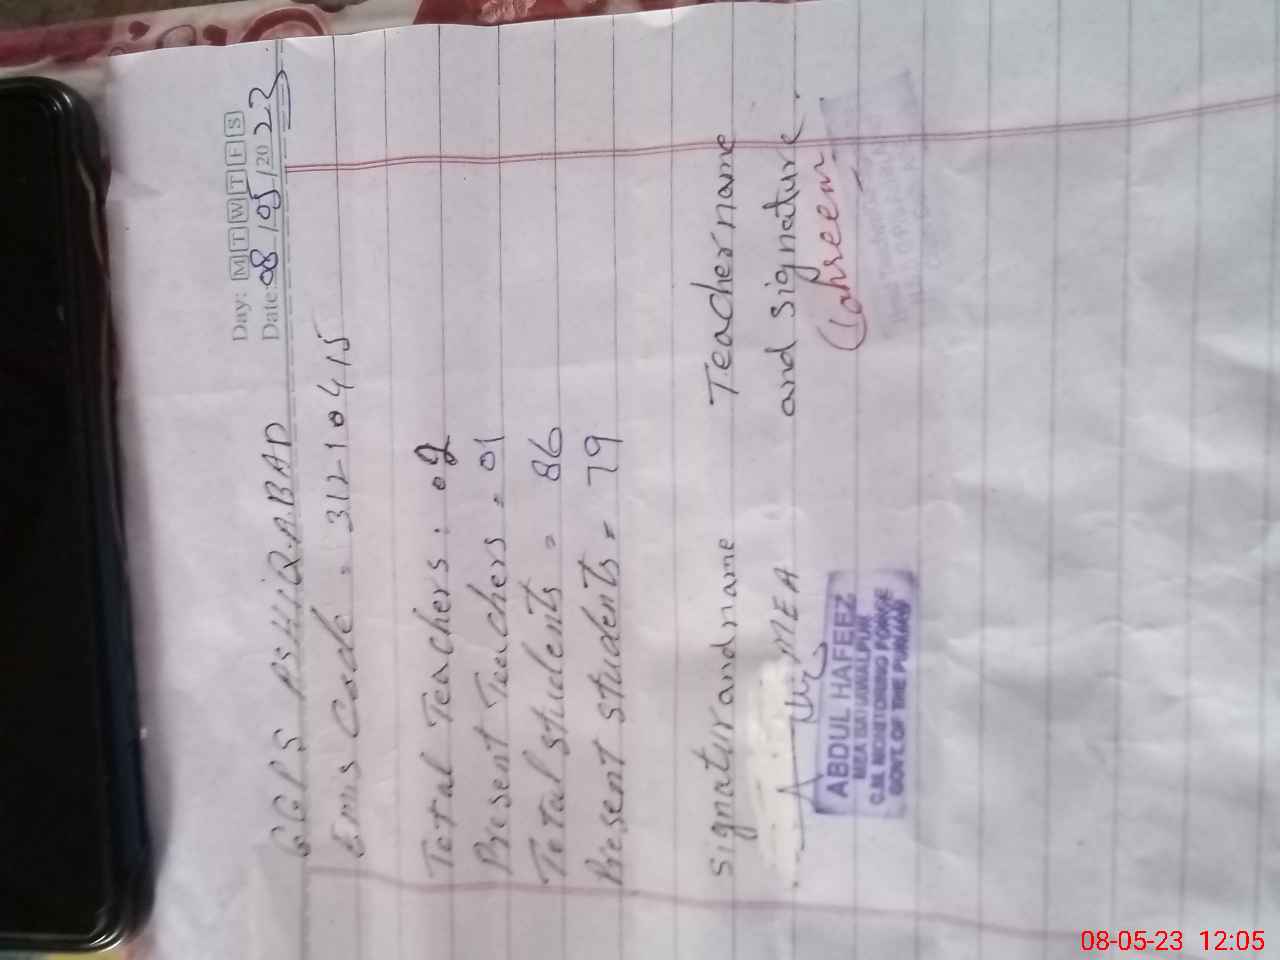 Day: M T W T F S
Date: 08/05/2023
GGPS ASHIQ.A.BAD
Emis Code = 31210415
Total Teachers: 02
Present Teachers = 01
Total students = 86
Present students = 79
signatur and name
MEA
ABDUL HAFEEZ
MEA BAHAWALPUR
C.M. MONITORING FORCE
GOVT. OF THE PUNJAB
Teacher name
and signature
08-05-23 12:05